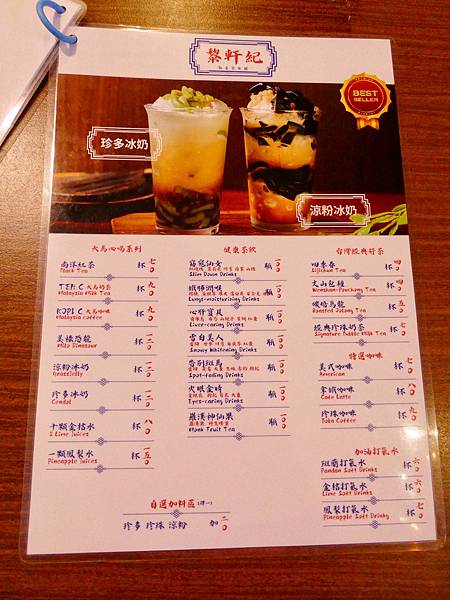 黎軒紀
BEST
SELLER
珍多冰奶
涼粉冰奶
大馬心喝系列
南洋紅茶 杯 七〇
Black Tea
TEH C 大馬奶茶 杯 九〇
Malaysia Milk Tea
KOPI C 大馬咖啡 杯 九〇
Malaysia Coffee
美祿恐龍 杯
Milo Dinosaur
涼粉冰奶 杯
Grassjelly
珍多冰奶 杯
Cendol
十顆金桔水 杯 八〇
S Lime Juices
一顆鳳梨水 杯
Pineapple Juices
健康茶飲
窈窕仙女 瓶
Slim Down Drinks
瓶
Lungs-moisturising Drinks
心肝寶貝 瓶
Liver-caring Drinks
雪白美人 瓶
Snowy Whitening Drinks
告別斑馬 瓶
Spot-fading Drinks
火眼金睛 瓶
Eyes-caring Drinks
羅漢神仙果 瓶
Monk Fruit Tea
台灣經典好茶
四季春 杯 四〇
Sijichun Tea
文山包種 杯 四〇
Wenshan-Pouchong Tea
碳焙烏龍 杯 五〇
Roasted Oolong Tea
經典珍珠奶茶 杯 七〇
Signature Bubble Milk Tea
特選咖啡
美式咖啡 杯 七〇
American
拿鐵咖啡 杯 八〇
Cafe Latte
珍珠咖啡 杯 九〇
Toka Coffee
加油打氣水
班蘭打氣水 杯 六〇
Pandan Soft Drinks
金桔打氣水 杯 六〇
Lime Soft Drinks
鳳梨打氣水 杯 七〇
Pineapple Soft Drinks
自選加料區(擇一)
珍多 珍珠 涼粉 加 二〇